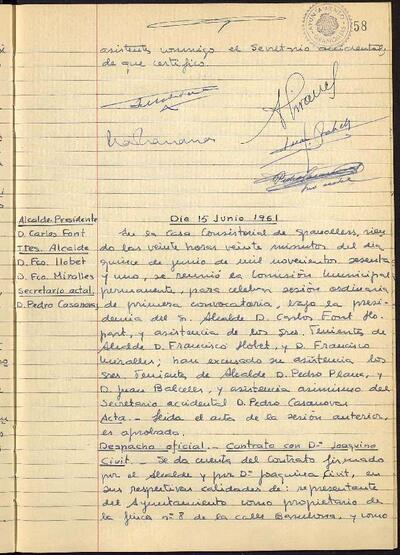 58
AYUNTAMIENTO
asistente conmigo el Secretario accidental
de que certifico.
Dia 15 Junio 1961
Alcalde-Presidente
D. Carlos Font
Tres. Alcalde
D. Fco. Llobet
D. Fco. Miralles
Secretario actal.
D. Pedro Casanovas
En la Casa Consistorial de Granollers, sien
do las veinte horas veinte minutos del dia
quince de junio de mil novecientos sesenta
y uno, se reunió la Comisión Municipal
permanente, para celebrar sesión ordinaria
de primera convocatoria, bajo la presi-
dencia del Sr. Alcalde D. Carlos Font Llo-
part, y asistencia de los Sres. Tenientes de
Alcalde D. Francisco Llobet, y D. Francisco
Miralles; han excusado su asistencia los
Sres Tenientes de Alcalde D. Pedro Plana, y
D. Juan Balcells, y asistencia asimismo del
Secretario accidental D. Pedro Casanovas
Acta. - Leida el acta de la sesión anterior,
es aprobada.
Despacho oficial. - Contrato con Dª Joaquina
Civit. - Se da cuenta del Contrato firmado
por el Alcalde y por Dª Joaquina Civit, en
sus respectivas calidades de: representante
del Ayuntamiento como propietario de
la finca nº 8 de la calle Barcelona, y como